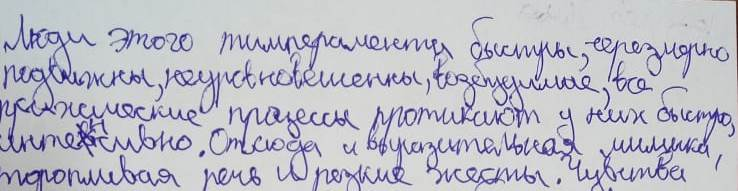 Люди этого тимперамента быстры, черезмерно
подвижны, неуровновешенны, возбудимые, все
психические процессы протикают у них быстро,
интенсивно. Отсюда и выразительная мимика,
торопливая речь и резкие жесты. Чувства